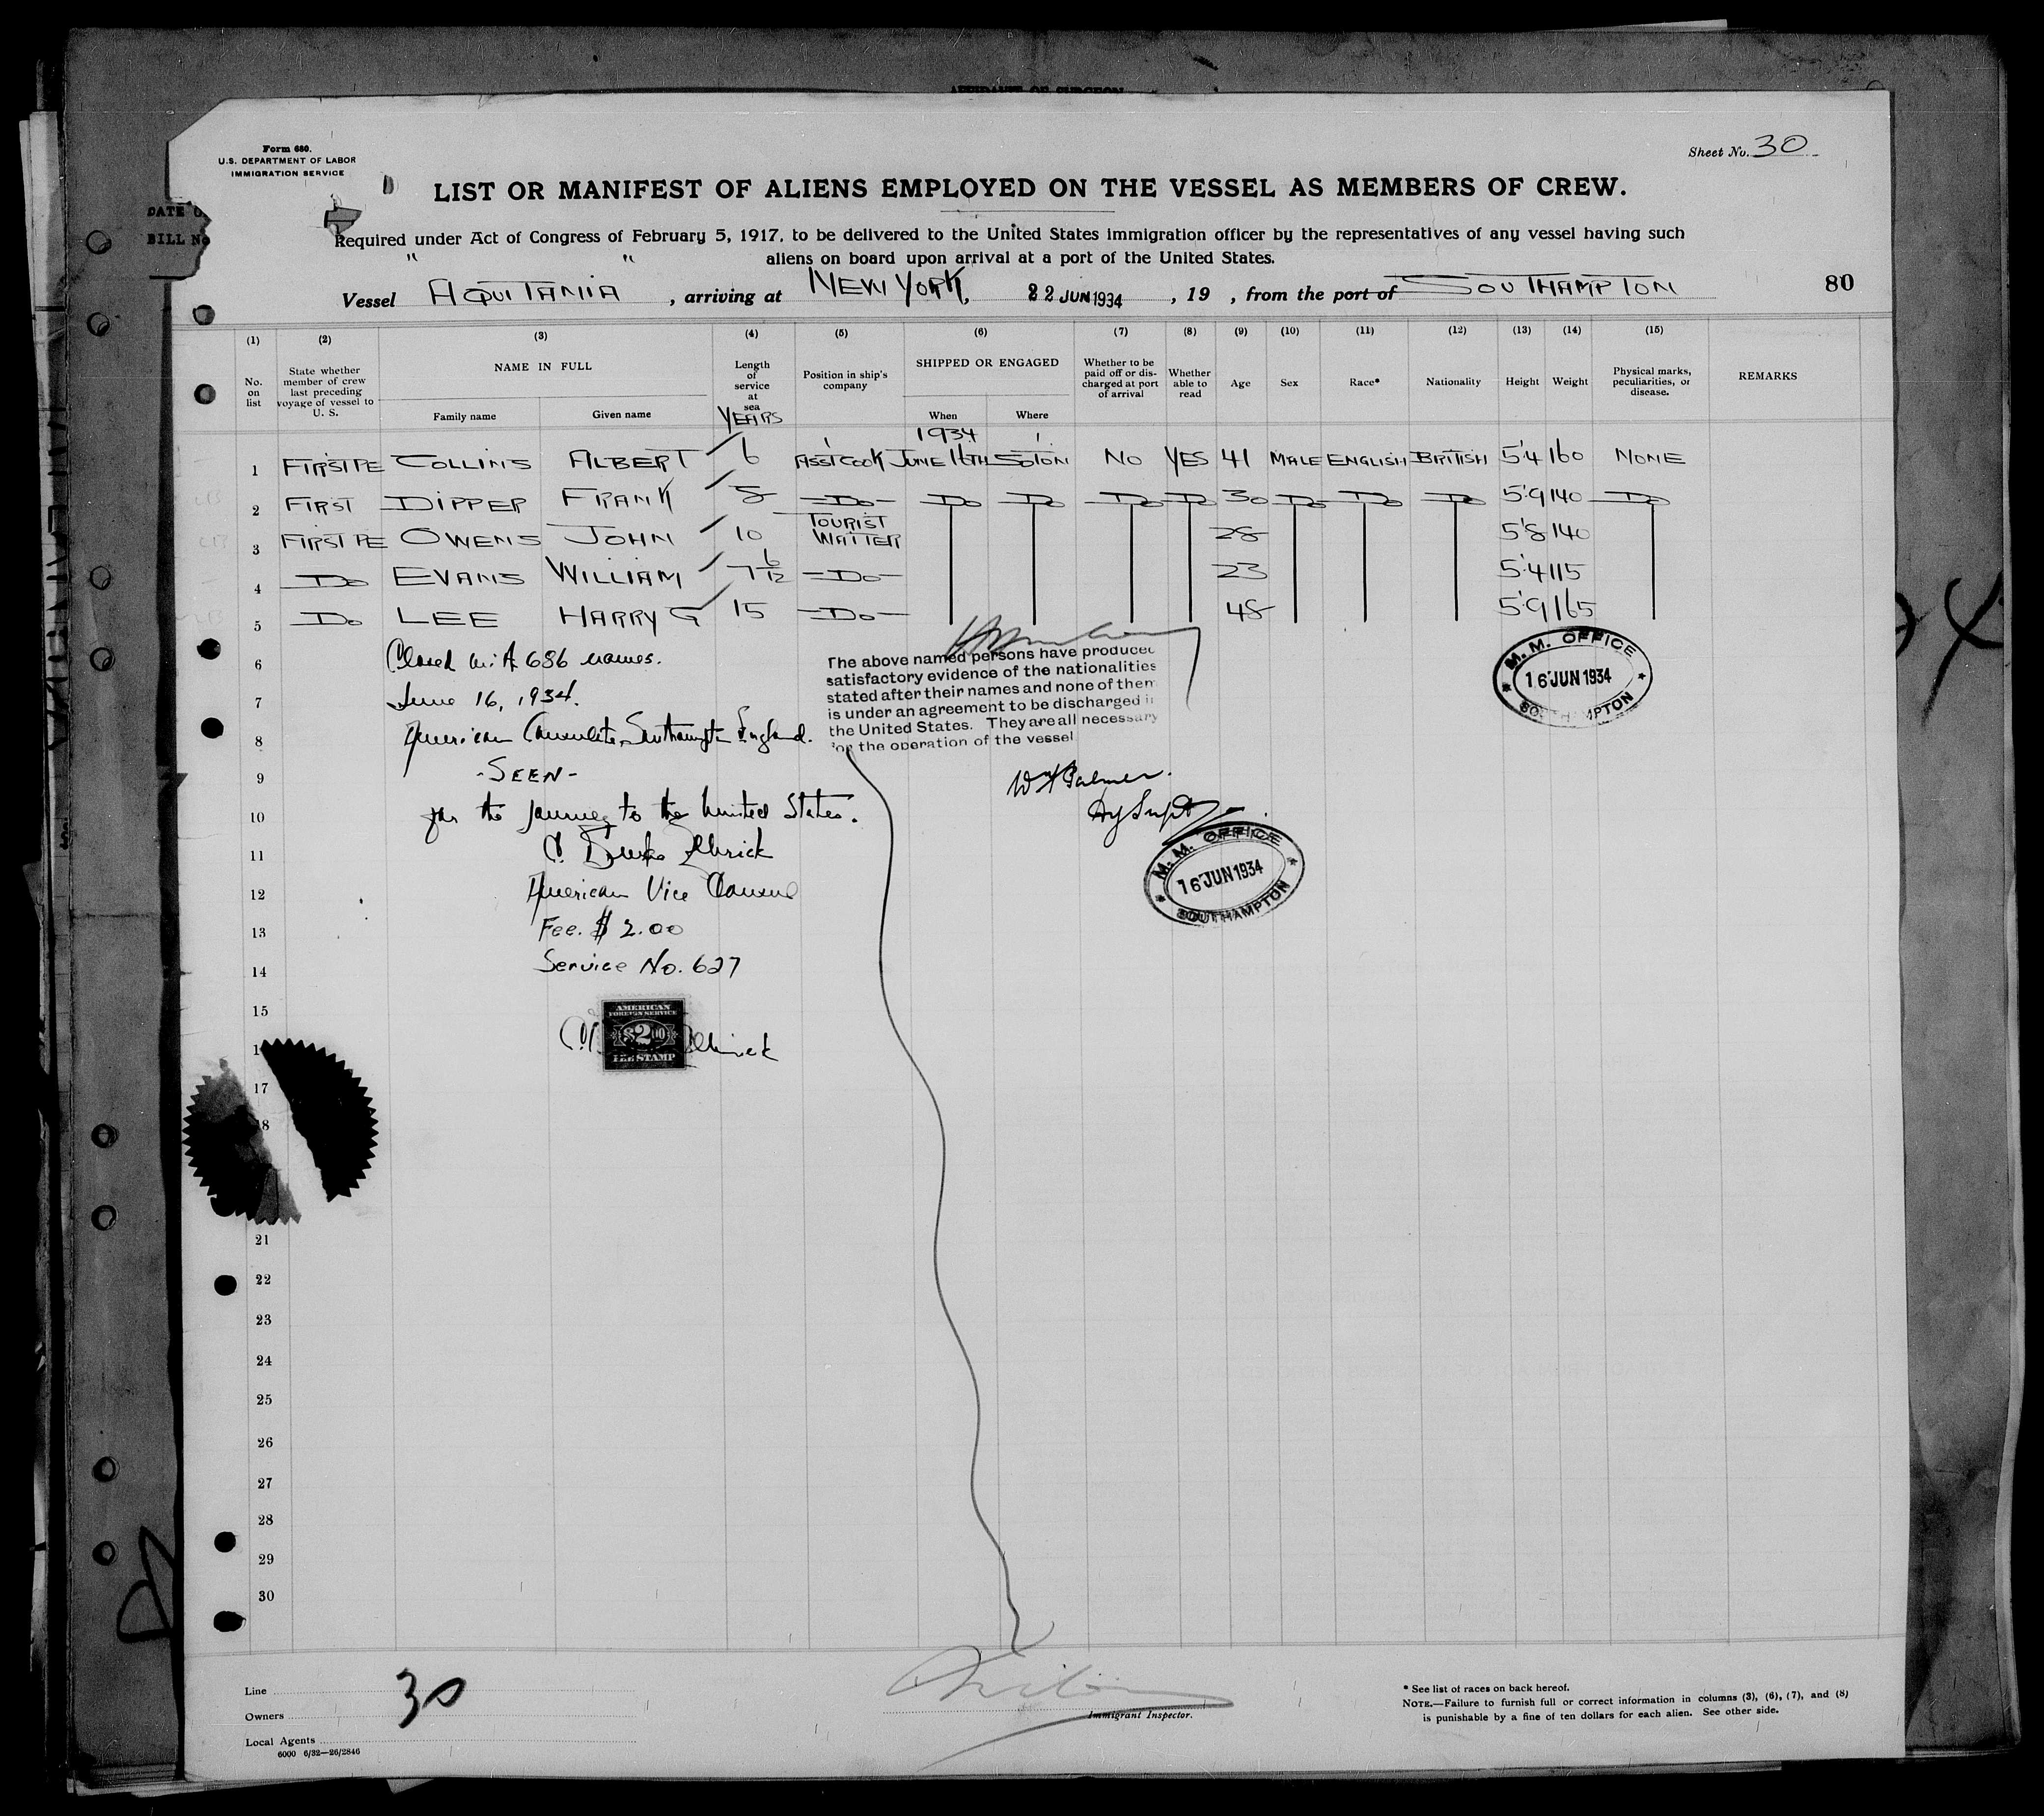 AFFIDAVIT OF SURGEON
Form 680.
U.S. DEPARTMENT OF LABOR
IMMIGRATION SERVICE
Sheet No. 30
DATE O
BILL No
LIST OR MANIFEST OF ALIENS EMPLOYED ON THE VESSEL AS MEMBERS OF CREW.
Required under Act of Congress of February 5, 1917, to be delivered to the United States immigration officer by the representatives of any vessel having such
" " aliens on board upon arrival at a port of the United States.
Vessel AQUITANIA, arriving at NEW YORK, 22 JUN 1934, 19 , from the port of SOUTHAMPTON 80
(1) (2) (3) (4) (5) (6) (7) (8) (9) (10) (11) (12) (13) (14) (15)
No. on list State whether member of crew last preceding voyage of vessel to U. S. NAME IN FULL Family name Given name Length of service at sea YEARS Position in ship's company SHIPPED OR ENGAGED When Where Whether to be paid off or discharged at port of arrival Whether able to read Age Sex Race* Nationality Height Weight Physical marks, peculiarities, or disease. REMARKS
1934
1 FIRST PE COLLINS ALBERT 6 ASST COOK JUNE 16TH SOTON NO YES 41 MALE ENGLISH BRITISH 5'4 160 NONE
2 FIRST DIPPER FRANK 8 Do Do Do Do Do 30 Do Do Do 5'9 140 Do
3 FIRST PE OWENS JOHN 10 TOURIST WAITER 28 5'8 140
4 Do EVANS WILLIAM 7 6/12 Do 23 5'4 115
5 Do LEE HARRY G 15 Do 48 5'9 165
6 Closed with 686 names.
7 June 16, 1934.
8 American Consulate, Southampton England.
9 -SEEN-
10 for the journey to the United States.
11 C. Burke Elbrick
12 American Vice Consul
13 Fee. $ 2.00
14 Service No. 627
The above named persons have produced
satisfactory evidence of the nationalities
stated after their names and none of them
is under an agreement to be discharged in
the United States. They are all necessary
for the operation of the vessel
W H Palmer.
Dy Supt
M. M. OFFICE
16 JUN 1934
SOUTHAMPTON
M. M. OFFICE
16 JUN 1934
SOUTHAMPTON
15
AMERICAN
FOREIGN SERVICE
$2.00
FEE STAMP
C. Elbrick
17
21
22
23
24
25
26
27
28
29
30
Line
30
Owners
Local Agents
6000 6/32—26/2846
Immigrant Inspector.
* See list of races on back hereof.
NOTE.—Failure to furnish full or correct information in columns (3), (6), (7), and (8)
is punishable by a fine of ten dollars for each alien. See other side.